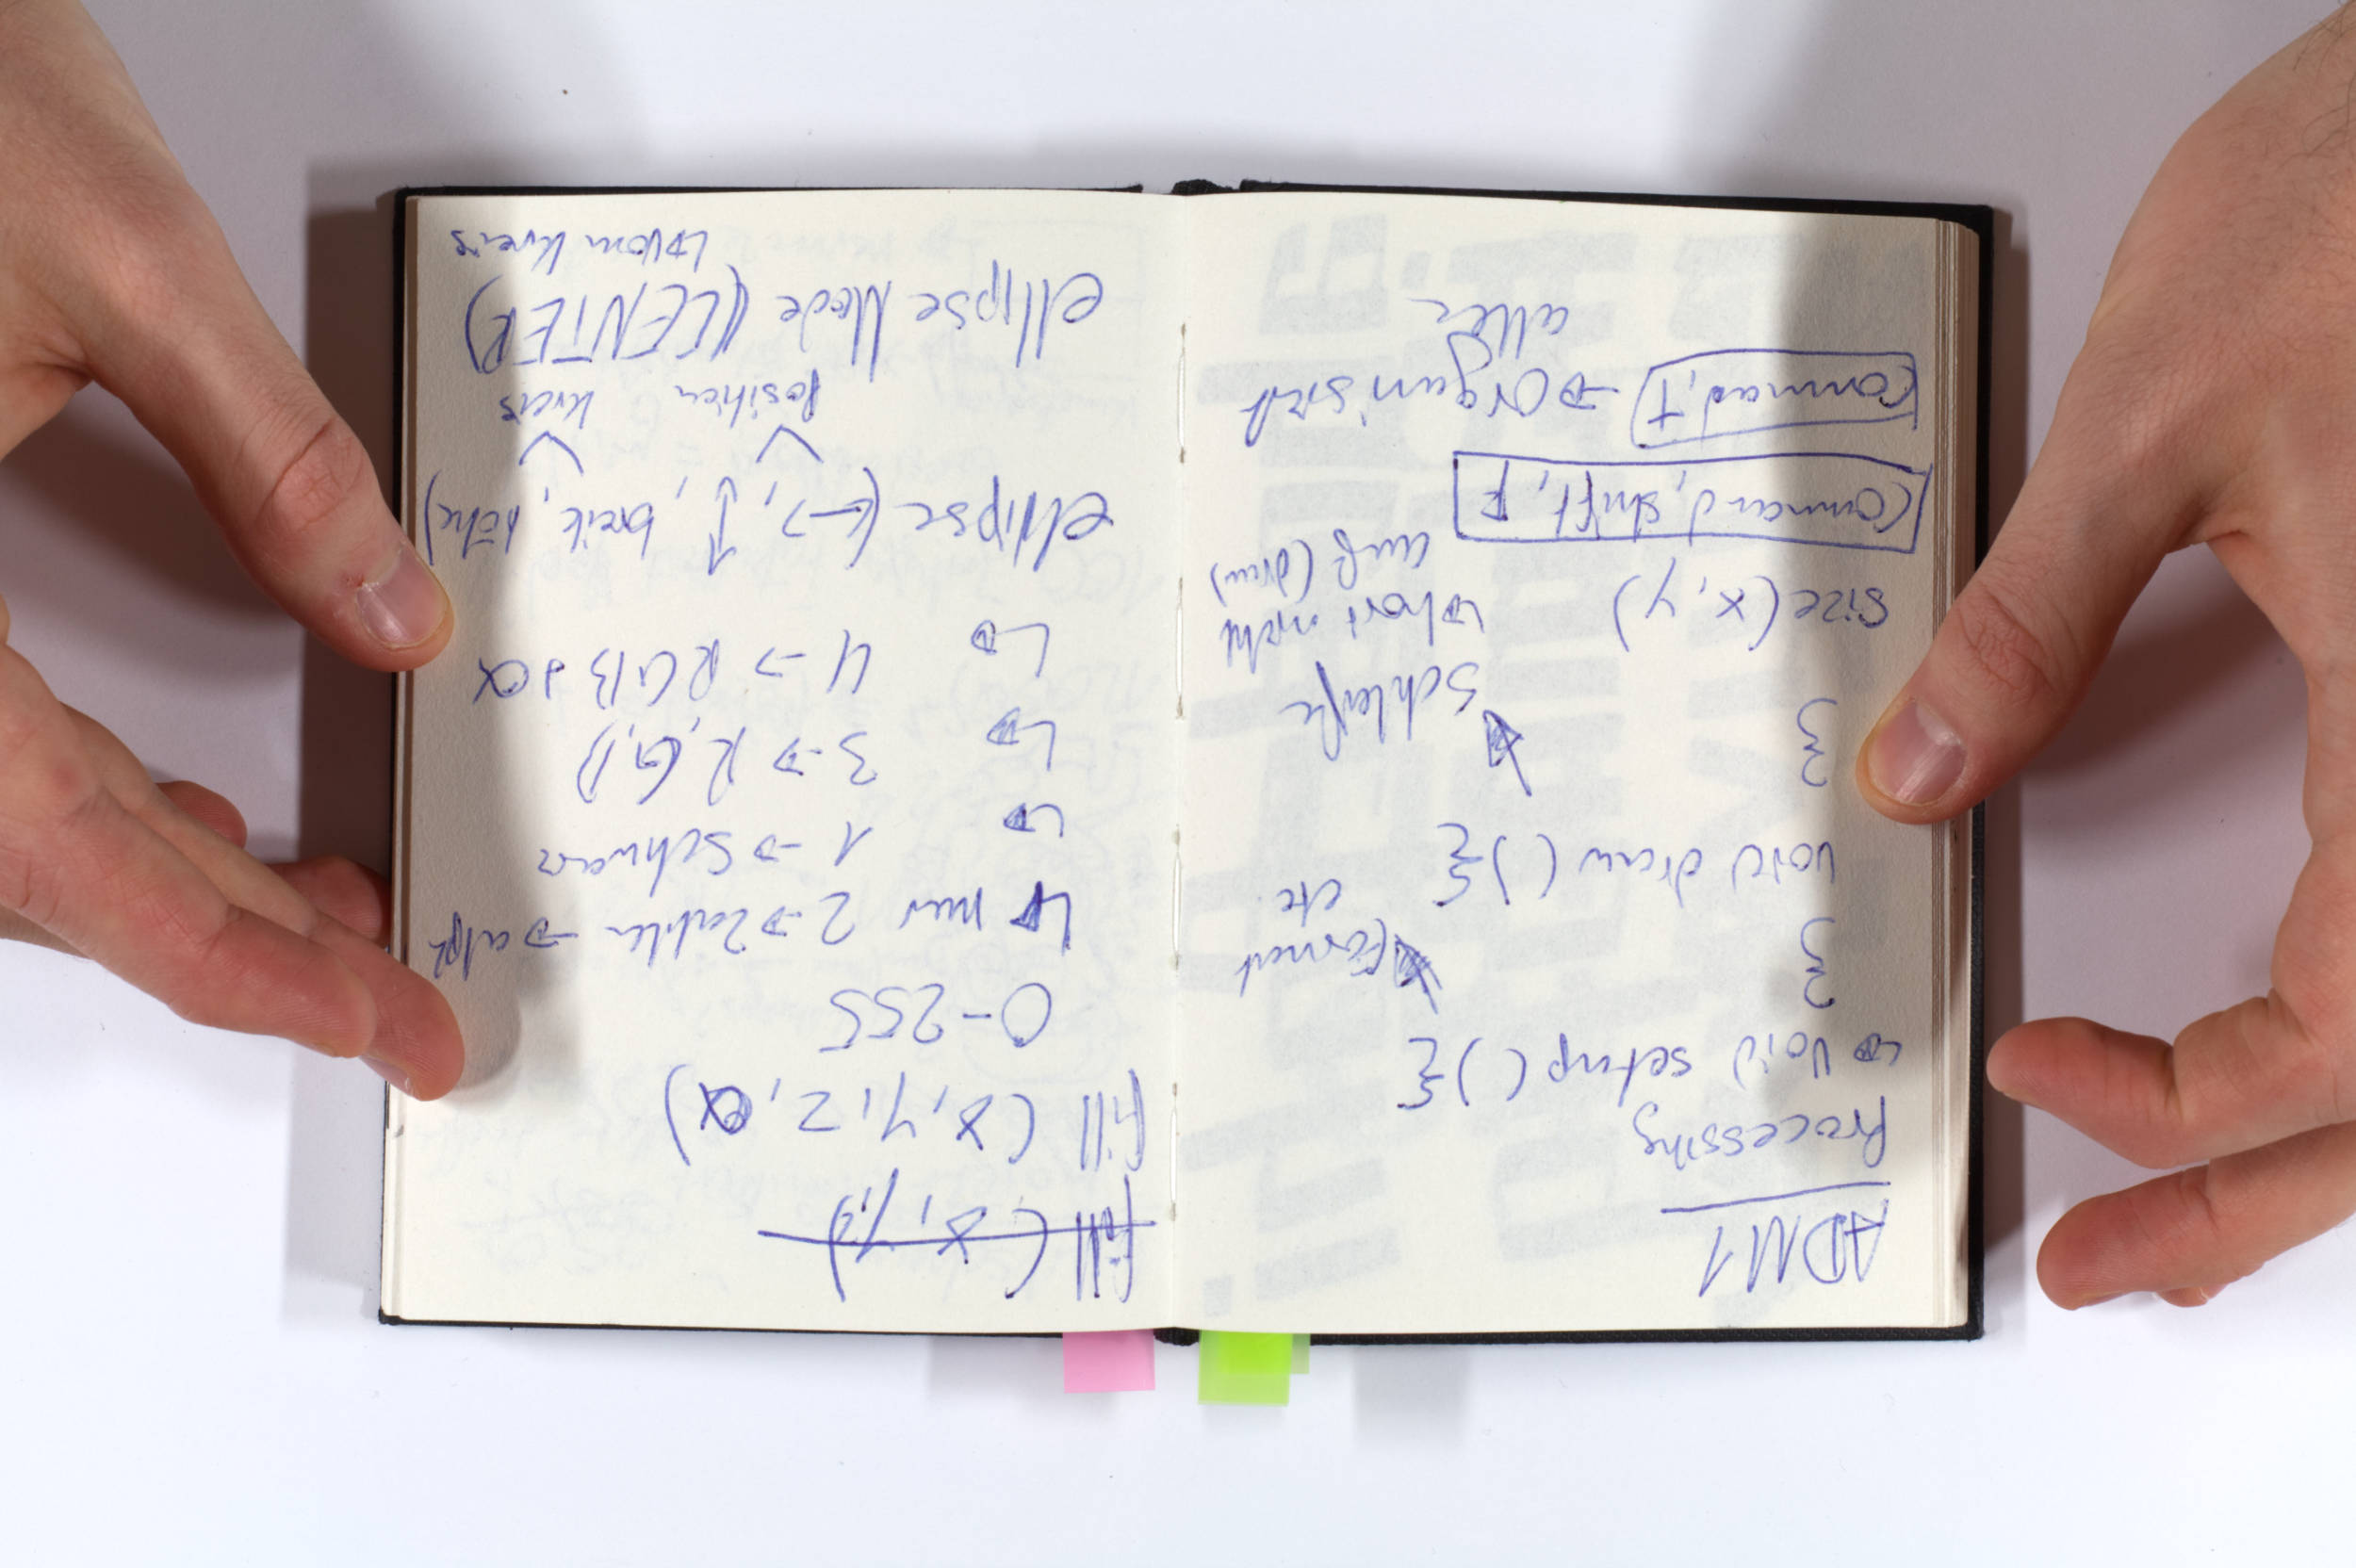 ADM1
Processing
↳ void setup(){
Format
etc.
}
void draw(){
}
Schleife
↳ hört nicht
auf (draw)
size(x, y)
Command, shift, F
Command, T → Organisiert
alles
fill(x, y, z)
fill(x, y, z, α)
0-255
↳ nur 2 → Zahlen → alpha
↳ 1 → Schwarz
↳ 3 → R,G,B
↳ 4 → RGB & α
ellipse(↔, ↕, breite, höhe)
Position kreis
ellipse Mode (CENTER)
↳ vom kreis